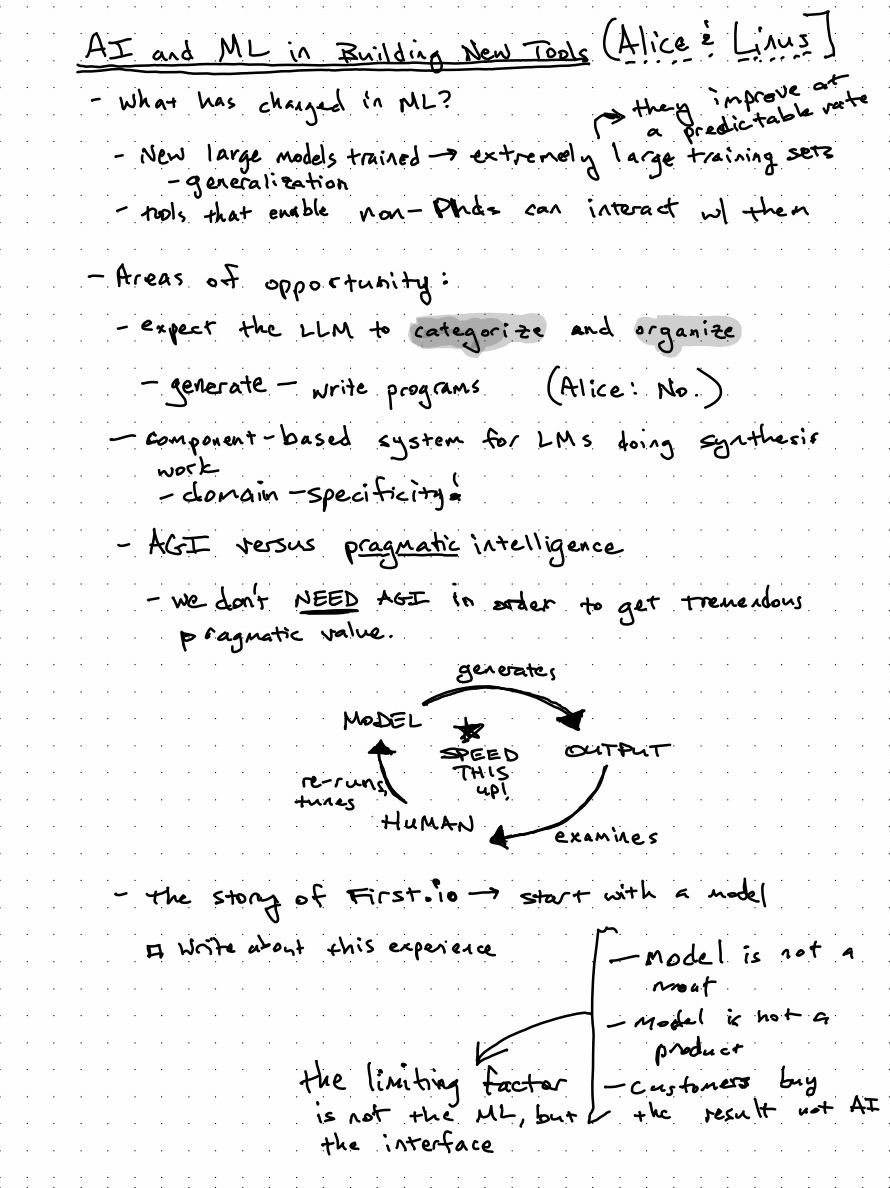 AI and ML in Building New Tools (Alice & Linus]
- What has changed in ML?
they improve at
a predictable rate
- New large models trained → extremely large training sets
- generalization
- tools that enable non-Phds can interact w/ them
- Areas of opportunity:
- expect the LLM to categorize and organize
- generate - write programs (Alice: No.)
- component-based system for LMs doing synthesis
work
- domain-specificity!
- AGI versus pragmatic intelligence
- we don't NEED AGI in order to get tremendous
pragmatic value.
generates
MODEL
★
SPEED
THIS
UP!
OUTPUT
re-runs,
tunes
HUMAN
examines
- the story of First.io → start with a model
□ Write about this experience
- Model is not a
moat
- Model is not a
product
- Customers buy
the result not AI
the limiting factor
is not the ML, but
the interface